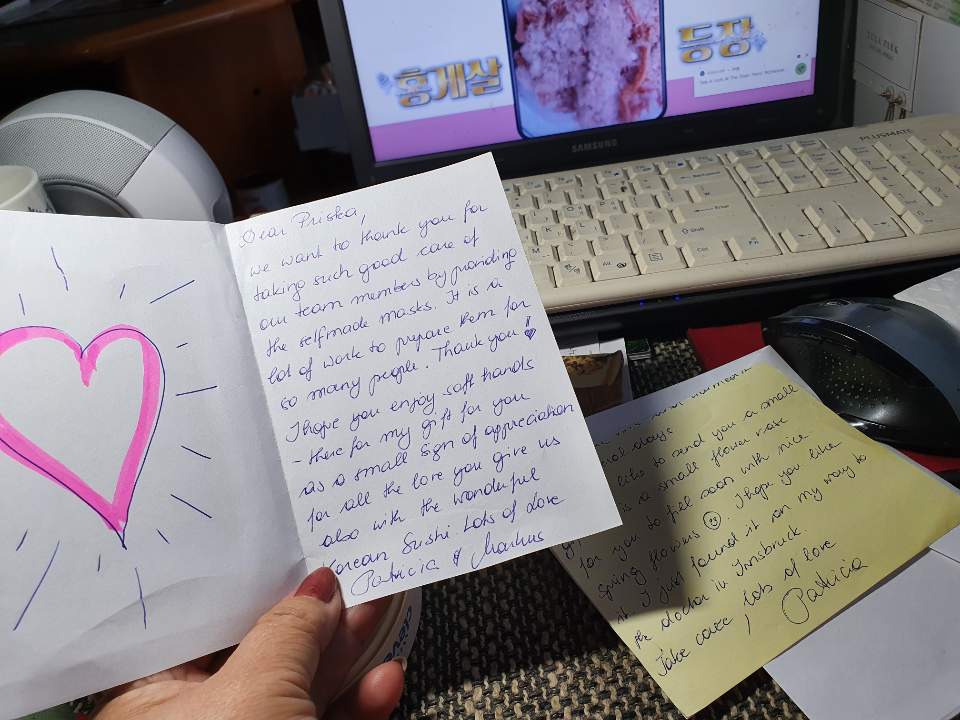 홍게살
등장
SAMSUNG
PLUSMATE
Dear Priska,
we want to thank you for
taking such good care of
our team members by providing
the selfmade masks. It is a
lot of work to prepare them for
so many people. Thank you!
I hope you enjoy soft hands
- there for my gift for you
as a small sign of appreciation
for all the love you give us
also with the wonderful
Korean Sushi. Lots of Love
Patricia & Markus
days
like to send you a small
is a small flower vase
for you to fill soon with nice
spring flowers ☺. I hope you like
it. I just found it on my way to
the doctor in Innsbruck.
Take care, lots of love
Patricia